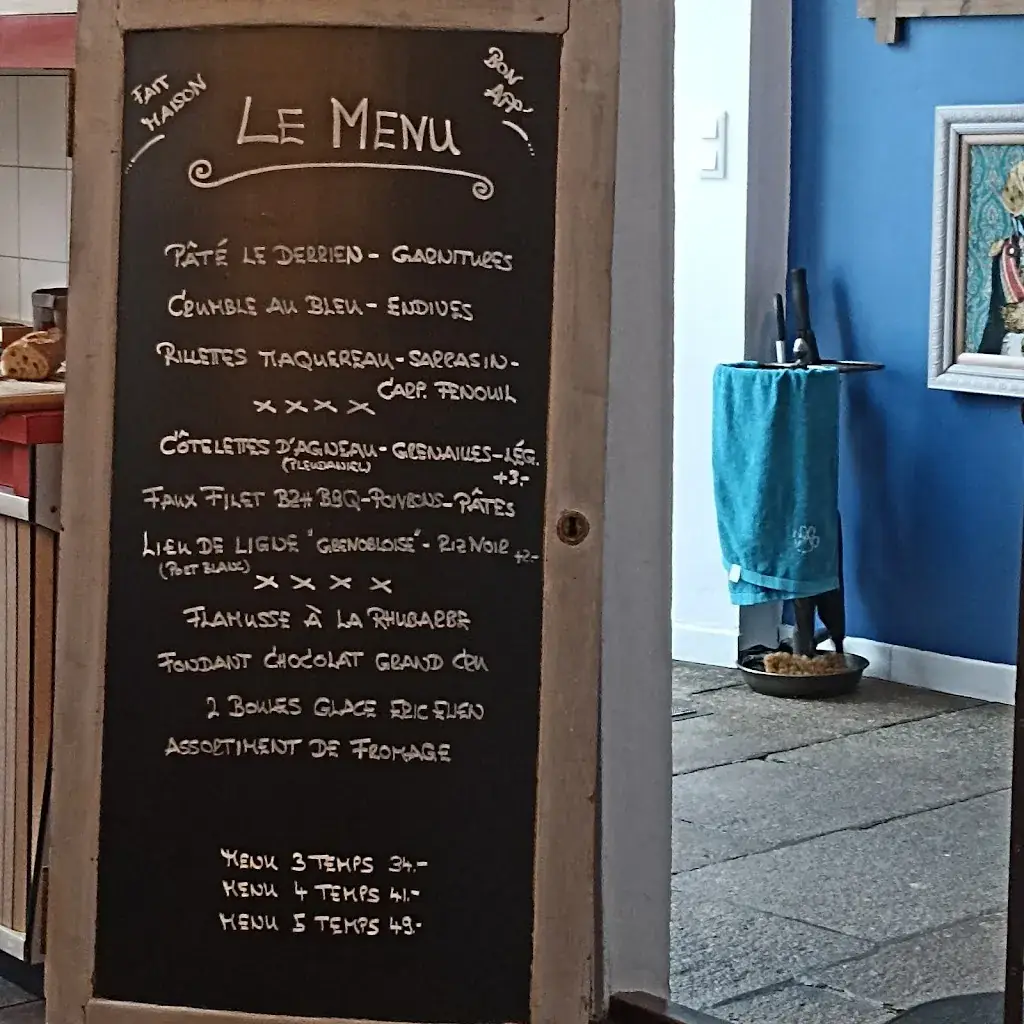 FAIT
MAISON
BON
APP
LE MENU
PÂTÉ LE DERRIEN - GARNITURES
CRUMBLE AU BLEU - ENDIVES
RILLETTES MAQUEREAU - SARRASIN -
CARP. FENOUIL
x x x x
CÔTELETTES D'AGNEAU - GRENAILLES - LÉG.
(PLEUDANIEL) +3.-
FAUX FILET BZH BBQ - POIVRONS - PÂTES
LIEU DE LIGNE "GRENOBLOISE" - RIZ NOIR +2.-
(PORT BLANC)
x x x x
FLAMUSSE À LA RHUBARBE
FONDANT CHOCOLAT GRAND CRU
2 BOULES GLACE ERIC ELIEN
ASSORTIMENT DE FROMAGE
MENU 3 TEMPS 34.-
MENU 4 TEMPS 41.-
MENU 5 TEMPS 49.-